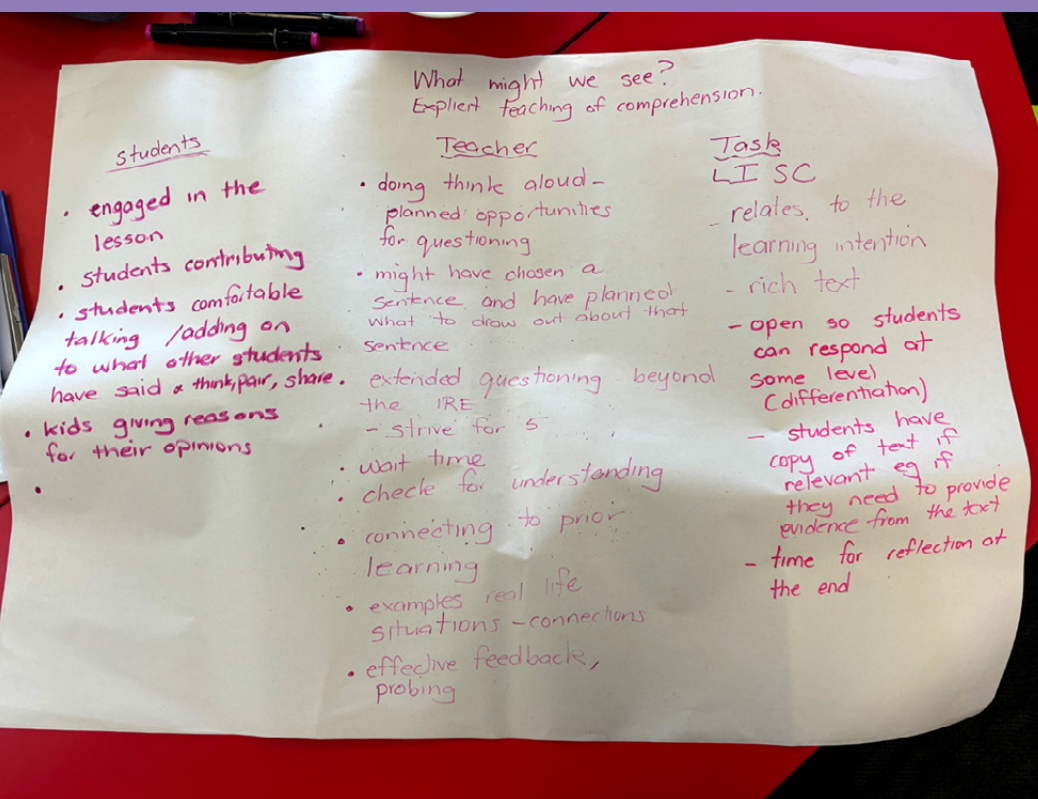 What might we see?
Explicit teaching of comprehension.
students
• engaged in the
lesson
• students contributing
• students comfortable
talking /adding on
to what other students
have said & think, pair, share.
• kids giving reasons
for their opinions
•
Teacher
• doing think aloud -
planned opportunities
for questioning
• might have chosen a
sentence and have planned
what to draw out about that
sentence
• extended questioning beyond
the IRE
- strive for 5
• wait time
• check for understanding
• connecting to prior
learning
• examples real life
situations - connections
• effective feedback,
probing
Task
LI SC
- relates to the
learning intention
- rich text
- open so students
can respond at
some level
(differentiation)
- students have
copy of text if
relevant eg if
they need to provide
evidence from the text
- time for reflection at
the end